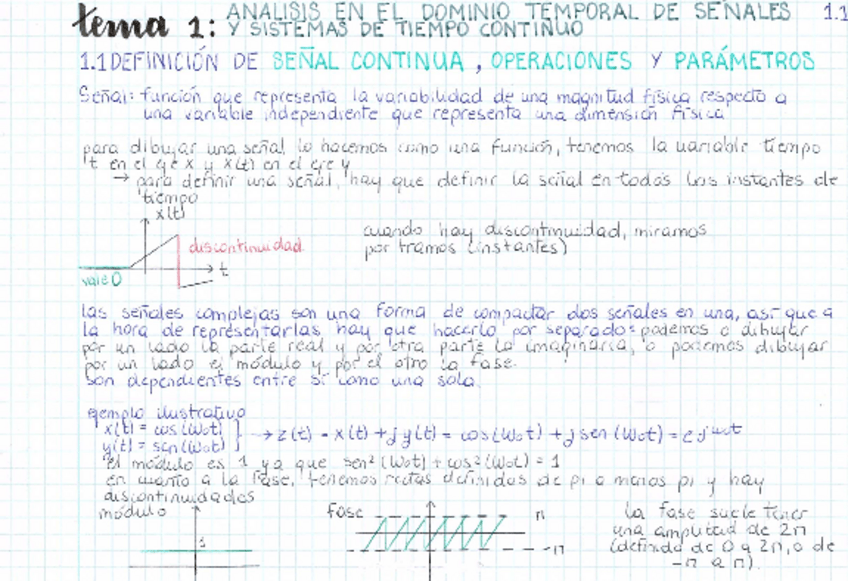 tema 1: ANALISIS EN EL DOMINIO TEMPORAL DE SEÑALES 1.1
Y SISTEMAS DE TIEMPO CONTINUO
1.1 DEFINICIÓN DE SEÑAL CONTINUA, OPERACIONES Y PARÁMETROS
Señal: función que representa la variabilidad de una magnitud física respecto a
una variable independiente que representa una dimensión física
para dibujar una señal lo hacemos como una función, tenemos la variable tiempo
t en el eje x y x(t) en el eje y
→ para definir una señal, hay que definir la señal en todos los instantes de
tiempo
x(t)
discontinuidad
t
vale 0
cuando hay discontinuidad, miramos
por tramos (instantes)
las señales complejas son una forma de compactar dos señales en una, así que a
la hora de representarlas hay que hacerlo por separado: podemos o dibujar
por un lado la parte real y por otra parte la imaginaria, o podemos dibujar
por un lado el módulo y por el otro la fase.
son dependientes entre sí como una sola.
ejemplo ilustrativo
x(t) = cos(ω₀t)
y(t) = sen(ω₀t) } → z(t) = x(t) + j y(t) = cos(ω₀t) + j sen(ω₀t) = e^jω₀t
el módulo es 1 ya que sen²(ω₀t) + cos²(ω₀t) = 1
en cuanto a la fase, tenemos rectas definidas de pi a menos pi y hay
discontinuidades
módulo
1
fase
π
-π
la fase suele tener
una amplitud de 2π
(definida de 0 a 2π, o de
-π a π)